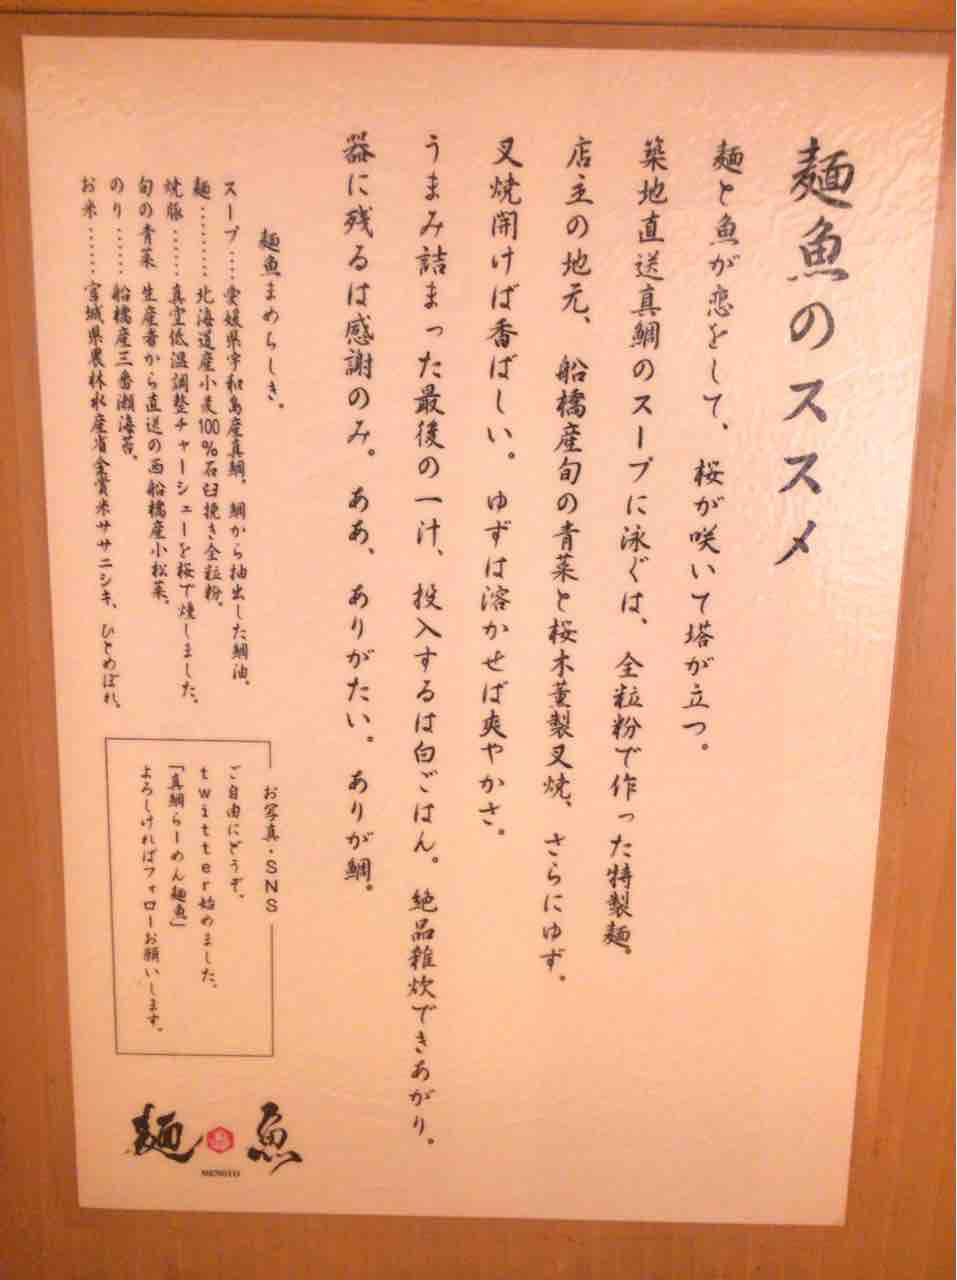 麺魚のススメ
麺と魚が恋をして、桜が咲いて塔が立つ。
築地直送真鯛のスープに泳ぐは、全粒粉で作った特製麺。
店主の地元、船橋産旬の青菜と桜木薫製叉焼、さらにゆず。
叉焼開けば香ばしい。ゆずは溶かせば爽やかさ。
うまみ詰まった最後の一汁、投入するは白ごはん。絶品雑炊できあがり。
器に残るは感謝のみ。ああ、ありがたい。ありが鯛。
麺魚まめちしき。
スープ‥‥愛媛県宇和島産真鯛。鯛から抽出した鯛油。
麺‥‥‥‥北海道産小麦100%石臼挽き全粒粉。
焼豚‥‥‥真空低温調整チャーシューを桜で燻しました。
旬の青菜 生産者から直送の西船橋産小松菜。
のり‥‥‥船橋産三番瀬海苔。
お米‥‥‥宮城県農林水産省金賞米ササニシキ、ひとめぼれ。
お写真・SNS
ご自由にどうぞ。
twitter始めました。
「真鯛らーめん麺魚」
よろしければフォローお願いします。
麺魚
MENGYO